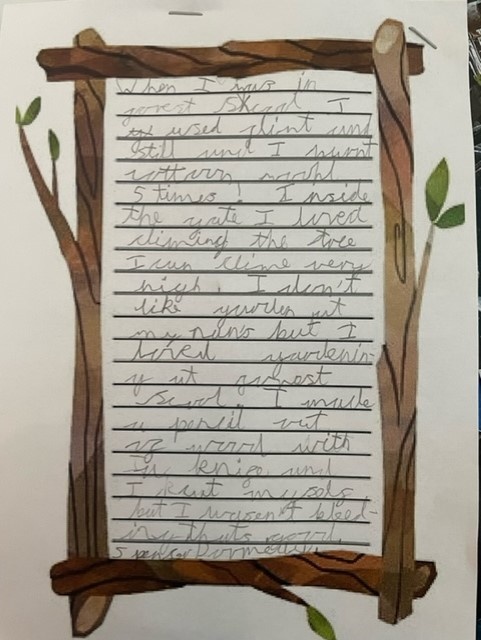 When I was in
forest Skcool I
used flint and
Still and I burnt
cottarn
5 times! I inside
the gate I loved
climing the tree
I can clime very
high. I don't
like garden at
my nans but I
loved gardenin-
g at forest
Scool. I made
a pencil out
of wood with
a knife and
I kcut my self
but I wasen't bleed-
ing thats good.